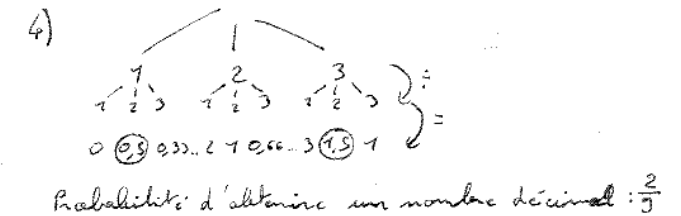 4)
1 2 3 ÷
1 2 3 1 2 3 1 2 3 =
0 0,5 0,33.. 2 1 0,66.. 3 1,5 1
Probabilité d'obtenir un nombre décimal : 2/9